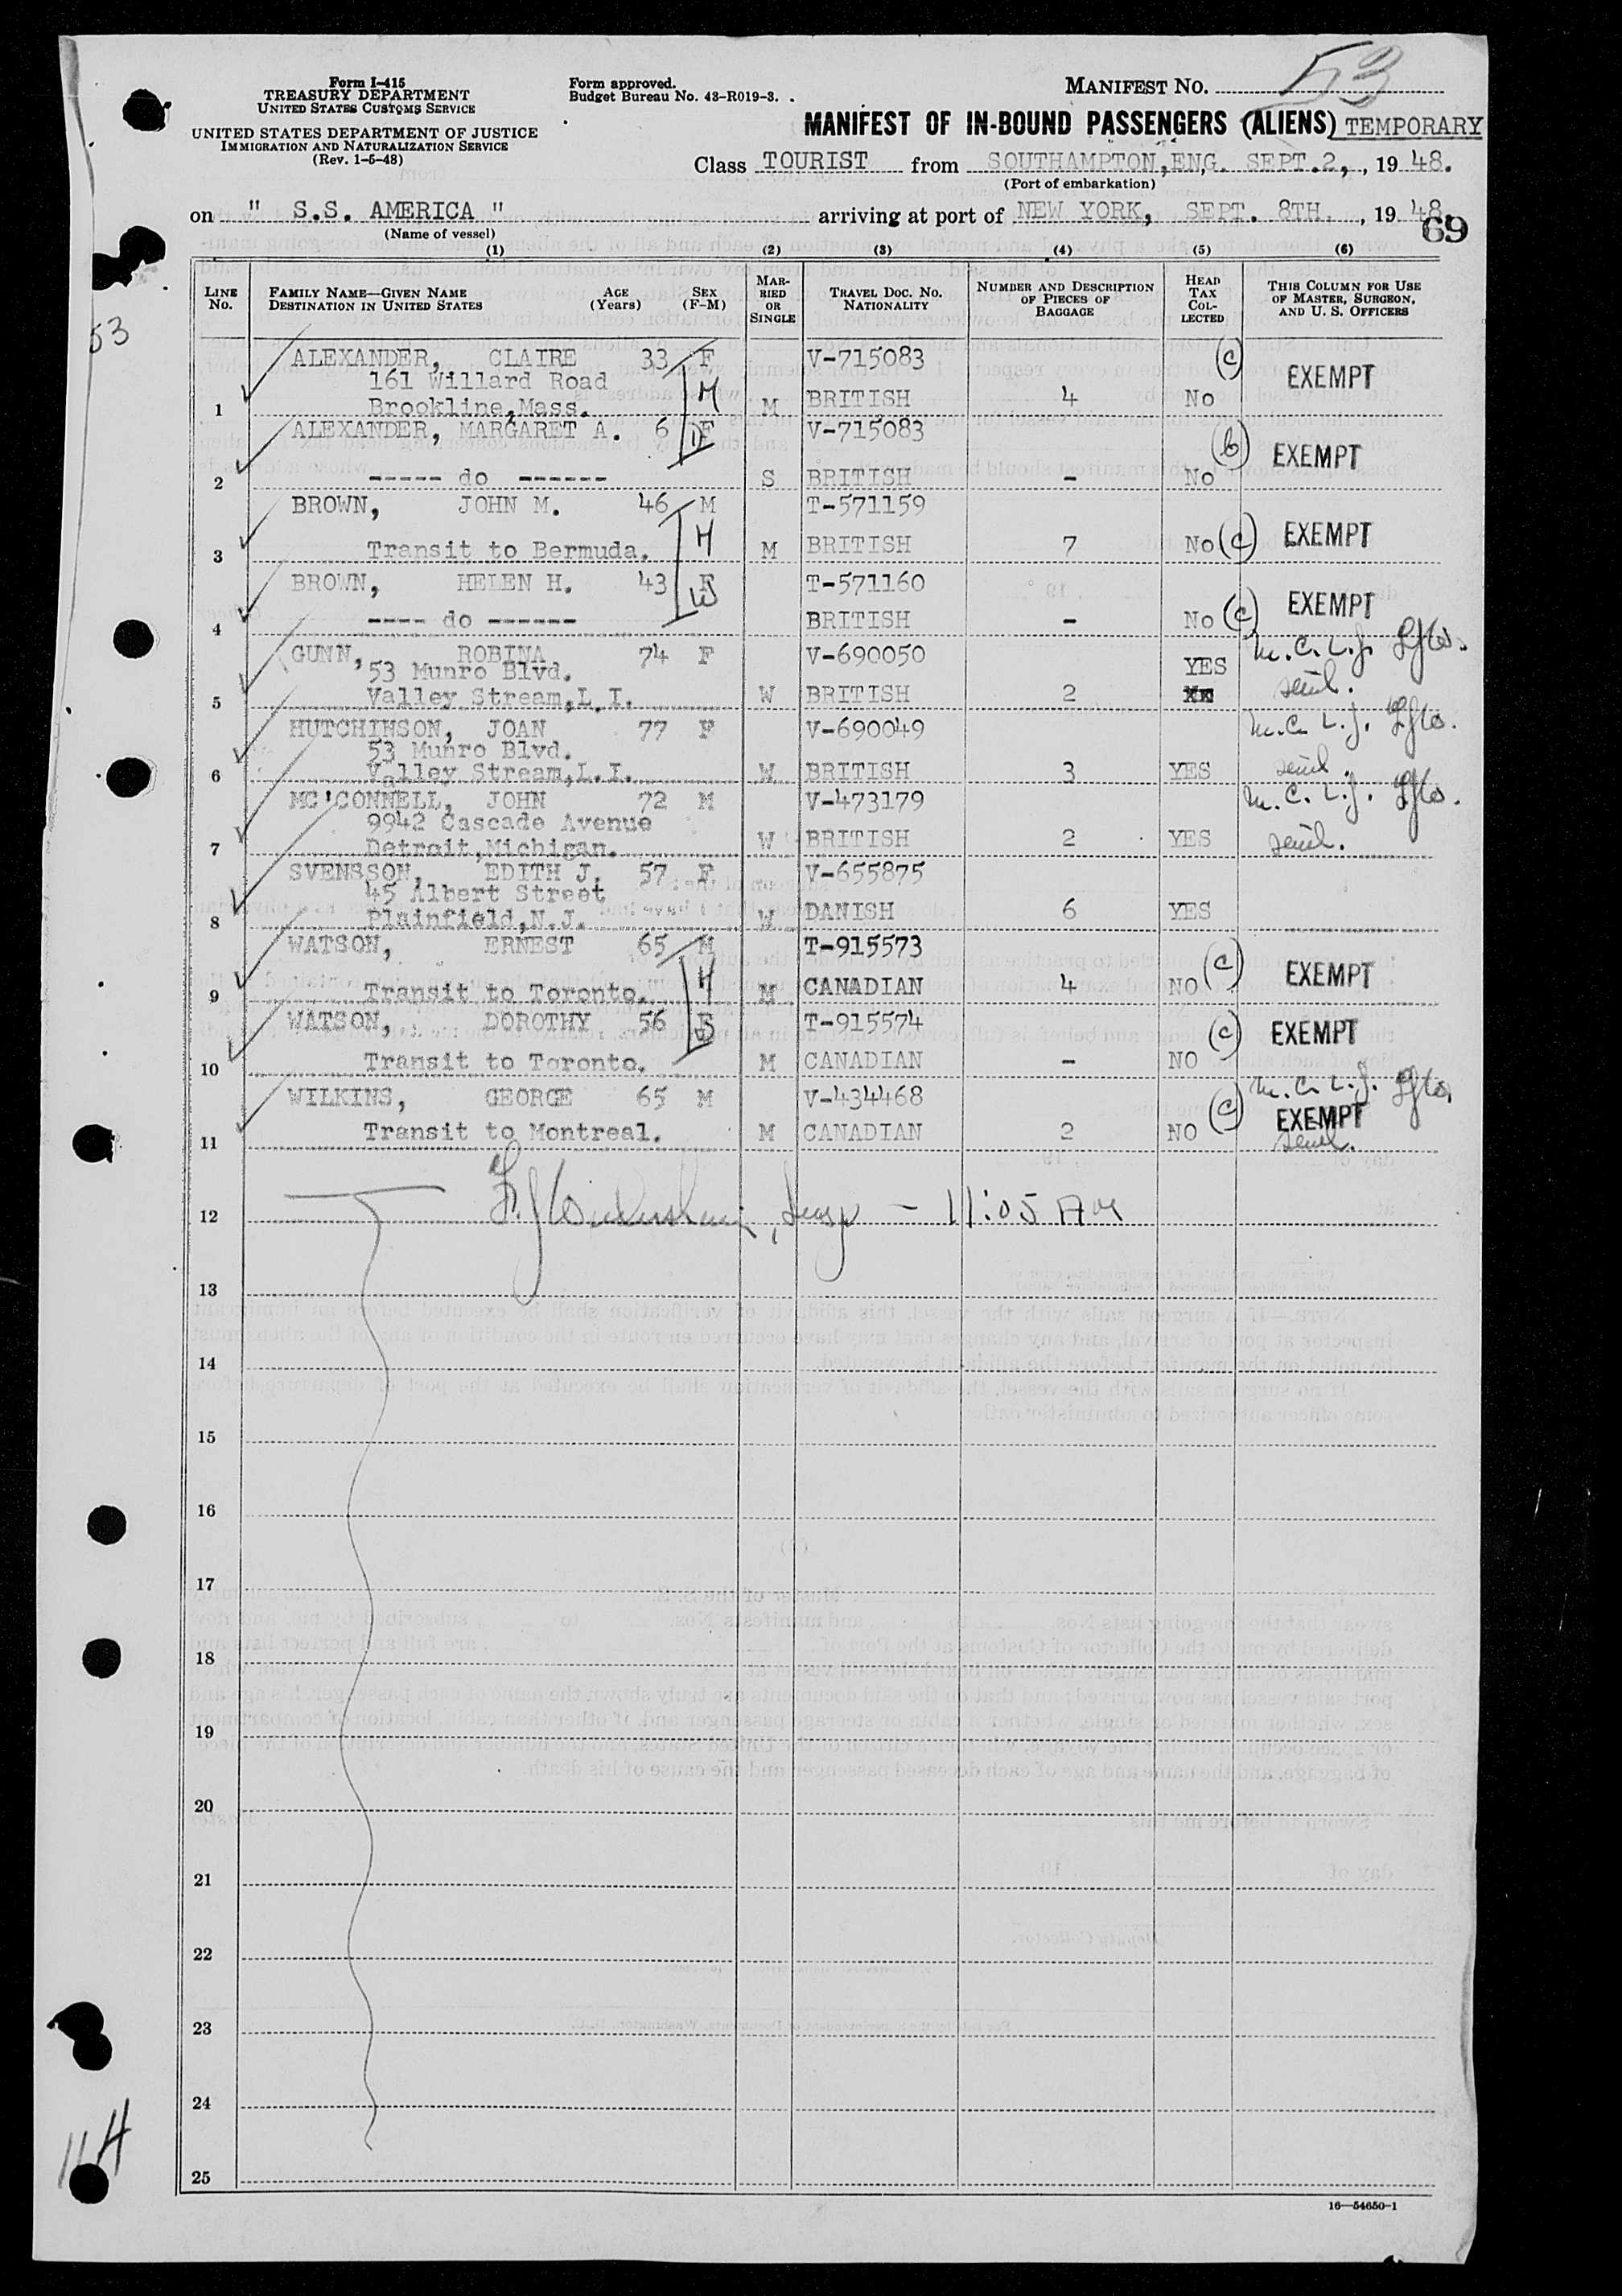 Form I-415
TREASURY DEPARTMENT
UNITED STATES CUSTOMS SERVICE
UNITED STATES DEPARTMENT OF JUSTICE
IMMIGRATION AND NATURALIZATION SERVICE
(Rev. 1-5-48)
Form approved.
Budget Bureau No. 43-R019-3.
MANIFEST NO. 53
MANIFEST OF IN-BOUND PASSENGERS (ALIENS) TEMPORARY
Class TOURIST from SOUTHAMPTON, ENG. SEPT. 2, , 19 48.
(Port of embarkation)
on " S.S. AMERICA " arriving at port of NEW YORK, SEPT. 8TH. , 19 48.
(Name of vessel)
69
(1) (2) (3) (4) (5) (6)
LINE No. FAMILY NAME—GIVEN NAME DESTINATION IN UNITED STATES AGE (Years) SEX (F-M) MARRIED OR SINGLE TRAVEL DOC. NO. NATIONALITY NUMBER AND DESCRIPTION OF PIECES OF BAGGAGE HEAD TAX COLLECTED THIS COLUMN FOR USE OF MASTER, SURGEON, AND U. S. OFFICERS
53
ALEXANDER, CLAIRE 33 F V-715083 (c) EXEMPT
161 Willard Road M
1 Brookline, Mass. M BRITISH 4 No
ALEXANDER, MARGARET A. 6 F D V-715083 (b) EXEMPT
2 ----- do ------ S BRITISH - No
BROWN, JOHN M. 46 M T-571159
3 Transit to Bermuda. H M BRITISH 7 No (c) EXEMPT
BROWN, HELEN H. 43 F W T-571160
4 ---- do ------ BRITISH - No (c) EXEMPT
GUNN, ROBINA 74 F V-690050 YES m.C.L.J.
53 Munro Blvd.
5 Valley Stream, L.I. W BRITISH 2 senil.
HUTCHINSON, JOAN 77 F V-690049 m.C. L.J.
53 Munro Blvd.
6 Valley Stream, L.I. W BRITISH 3 YES senil.
MC'CONNELL, JOHN 72 M V-473179 m.C.L.J.
9942 Cascade Avenue
7 Detroit, Michigan. W BRITISH 2 YES senil.
SVENSSON, EDITH J. 57 F V-655875
45 Albert Street
8 Plainfield, N.J. W DANISH 6 YES
WATSON, ERNEST 65 M T-915573
9 Transit to Toronto. H M CANADIAN 4 NO (c) EXEMPT
WATSON, DOROTHY 56 F T-915574 (c) EXEMPT
10 Transit to Toronto. M CANADIAN - NO
WILKINS, GEORGE 65 M V-434468 m.C.L.J.
11 Transit to Montreal. M CANADIAN 2 NO (c) EXEMPT senil.
12 11:05 AM
13
14
15
16
17
18
19
20
21
22
23
24
25
11 H
16—54650-1